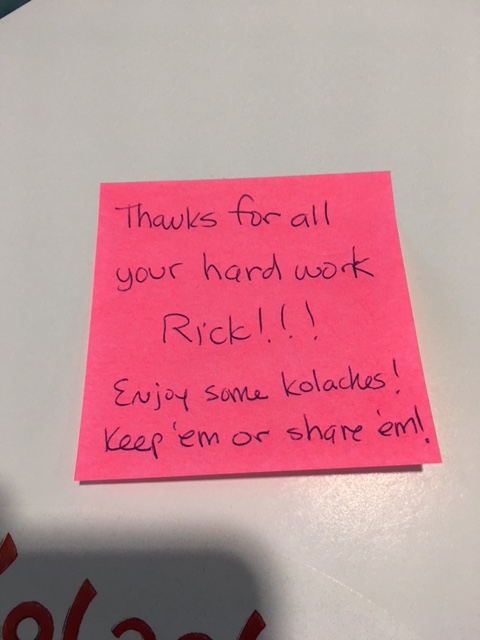 Thanks for all
your hard work
Rick!!!
Enjoy some kolaches!
Keep 'em or share 'em!